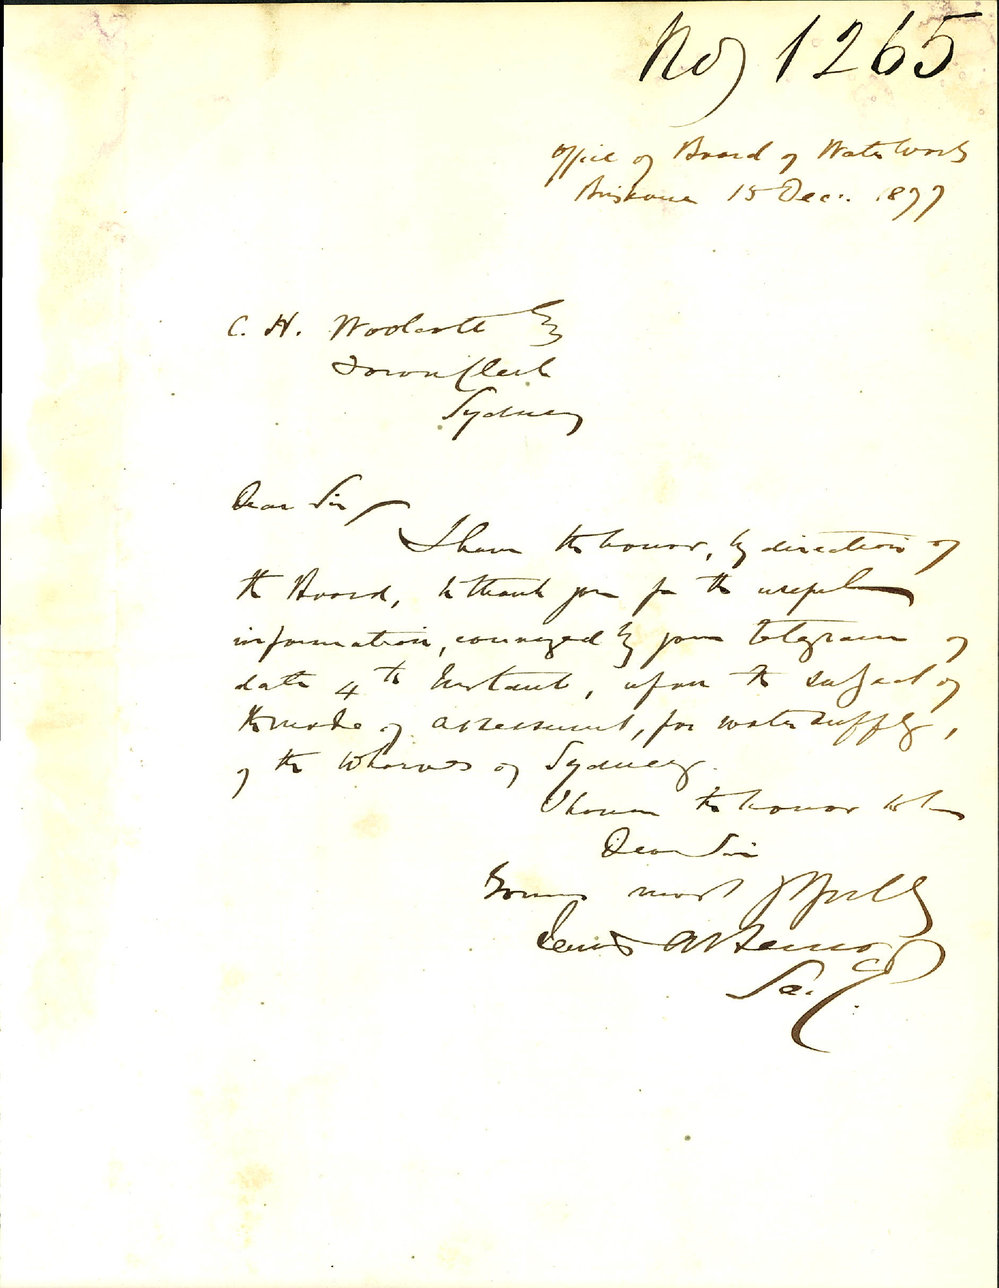 No 1265
Office of Board of Water Works
Brisbane 15 Dec.. 1877
C. H. Woolcott Esq
Town Clerk
Sydney
Dear Sir
I have the honor, by direction of
the Board, to thank you for the useful
information, conveyed by your telegram of
date 4th Instant, upon the subject of
the mode of assessment, for water supply,
of the Wharves of Sydney.
I have the honor to be
Dear Sir
Yours most
Sec.